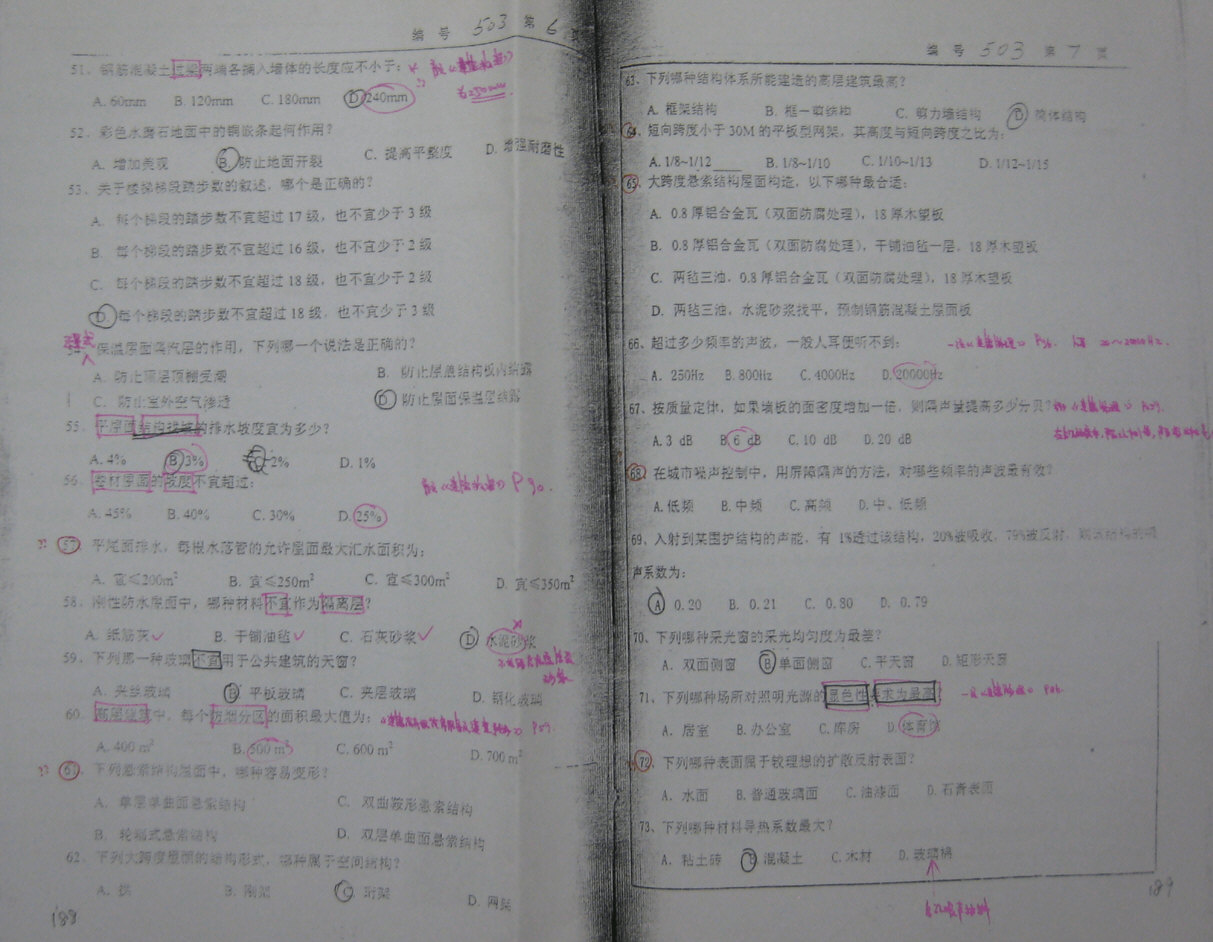 编号 503 第 6 页
51、钢筋混凝土过梁两端各插入墙体的长度应不小于：
A. 60mm B. 120mm C. 180mm D. 240mm
52、彩色水磨石地面中的铜嵌条起何作用？
A. 增加美观 B. 防止地面开裂 C. 提高平整度 D. 增强耐磨性
53、关于楼梯梯段踏步数的叙述，哪个是正确的？
A. 每个梯段的踏步数不宜超过 17 级，也不宜少于 3 级
B. 每个梯段的踏步数不宜超过 16 级，也不宜少于 2 级
C. 每个梯段的踏步数不宜超过 18 级，也不宜少于 2 级
D. 每个梯段的踏步数不宜超过 18 级，也不宜少于 3 级
54、保温屋面隔汽层的作用，下列哪一个说法是正确的？
A. 防止顶层顶棚受潮 B. 防止屋盖结构板内结露
C. 防止室外空气渗透 D. 防止屋面保温层结露
55、平屋面结构找坡的排水坡度宜为多少？
A. 4% B. 3% C. 2% D. 1%
56、卷材屋面的坡度不宜超过：
P90.
A. 45% B. 40% C. 30% D. 25%
57、平屋面排水，每根水落管的允许屋面最大汇水面积为：
A. 宜≤200m² B. 宜≤250m² C. 宜≤300m² D. 宜≤350m²
58、刚性防水屋面中，哪种材料不宜作为隔离层？
A. 纸筋灰 B. 干铺油毡 C. 石灰砂浆 D. 水泥砂浆
59、下列那一种玻璃不宜用于公共建筑的天窗？
A. 夹丝玻璃 B. 平板玻璃 C. 夹层玻璃 D. 钢化玻璃
60、高层建筑中，每个防烟分区的面积最大值为：
A. 400 m² B. 500 m² C. 600 m² D. 700 m²
61、下列悬索结构屋面中，哪种容易变形？
A. 单层单曲面悬索结构 C. 双曲鞍形悬索结构
B. 轮辐式悬索结构 D. 双层单曲面悬索结构
62、下列大跨度屋顶的结构形式，哪种属于空间结构？
A. 拱 B. 刚架 C. 珩架 D. 网架
188
编号 503 第 7 页
63、下列哪种结构体系所能建造的高层建筑最高？
A. 框架结构 B. 框－剪结构 C. 剪力墙结构 D. 筒体结构
64、短向跨度小于 30M 的平板型网架，其高度与短向跨度之比为：
A. 1/8~1/12 B. 1/8~1/10 C. 1/10~1/13 D. 1/12~1/15
65、大跨度悬索结构屋面构造，以下哪种最合适：
A. 0.8 厚铝合金瓦（双面防腐处理），18 厚木望板
B. 0.8 厚铝合金瓦（双面防腐处理），干铺油毡一层，18 厚木望板
C. 两毡三油，0.8 厚铝合金瓦（双面防腐处理），18 厚木望板
D. 两毡三油，水泥砂浆找平，预制钢筋混凝土屋面板
66、超过多少频率的声波，一般人耳便听不到：
A. 250Hz B. 800Hz C. 4000Hz D. 20000Hz
67、按质量定律，如果墙板的面密度增加一倍，则隔声量提高多少分贝？
A. 3 dB B. 6 dB C. 10 dB D. 20 dB
68、在城市噪声控制中，用屏障隔声的方法，对哪些频率的声波最有效？
A. 低频 B. 中频 C. 高频 D. 中、低频
69、入射到某围护结构的声能，有 1%透过该结构，20%被吸收，79%被反射，则该结构的吸
声系数为：
A 0.20 B. 0.21 C. 0.80 D. 0.79
70、下列哪种采光窗的采光均匀度为最差？
A. 双面侧窗 B. 单面侧窗 C. 平天窗 D. 矩形天窗
71、下列哪种场所对照明光源的显色性要求为最高？
A. 居室 B. 办公室 C. 库房 D. 体育馆
72、下列哪种表面属于较理想的扩散反射表面？
A. 水面 B. 普通玻璃面 C. 油漆面 D. 石膏表面
73、下列哪种材料导热系数最大？
A. 粘土砖 B. 混凝土 C. 木材 D. 玻璃棉
189